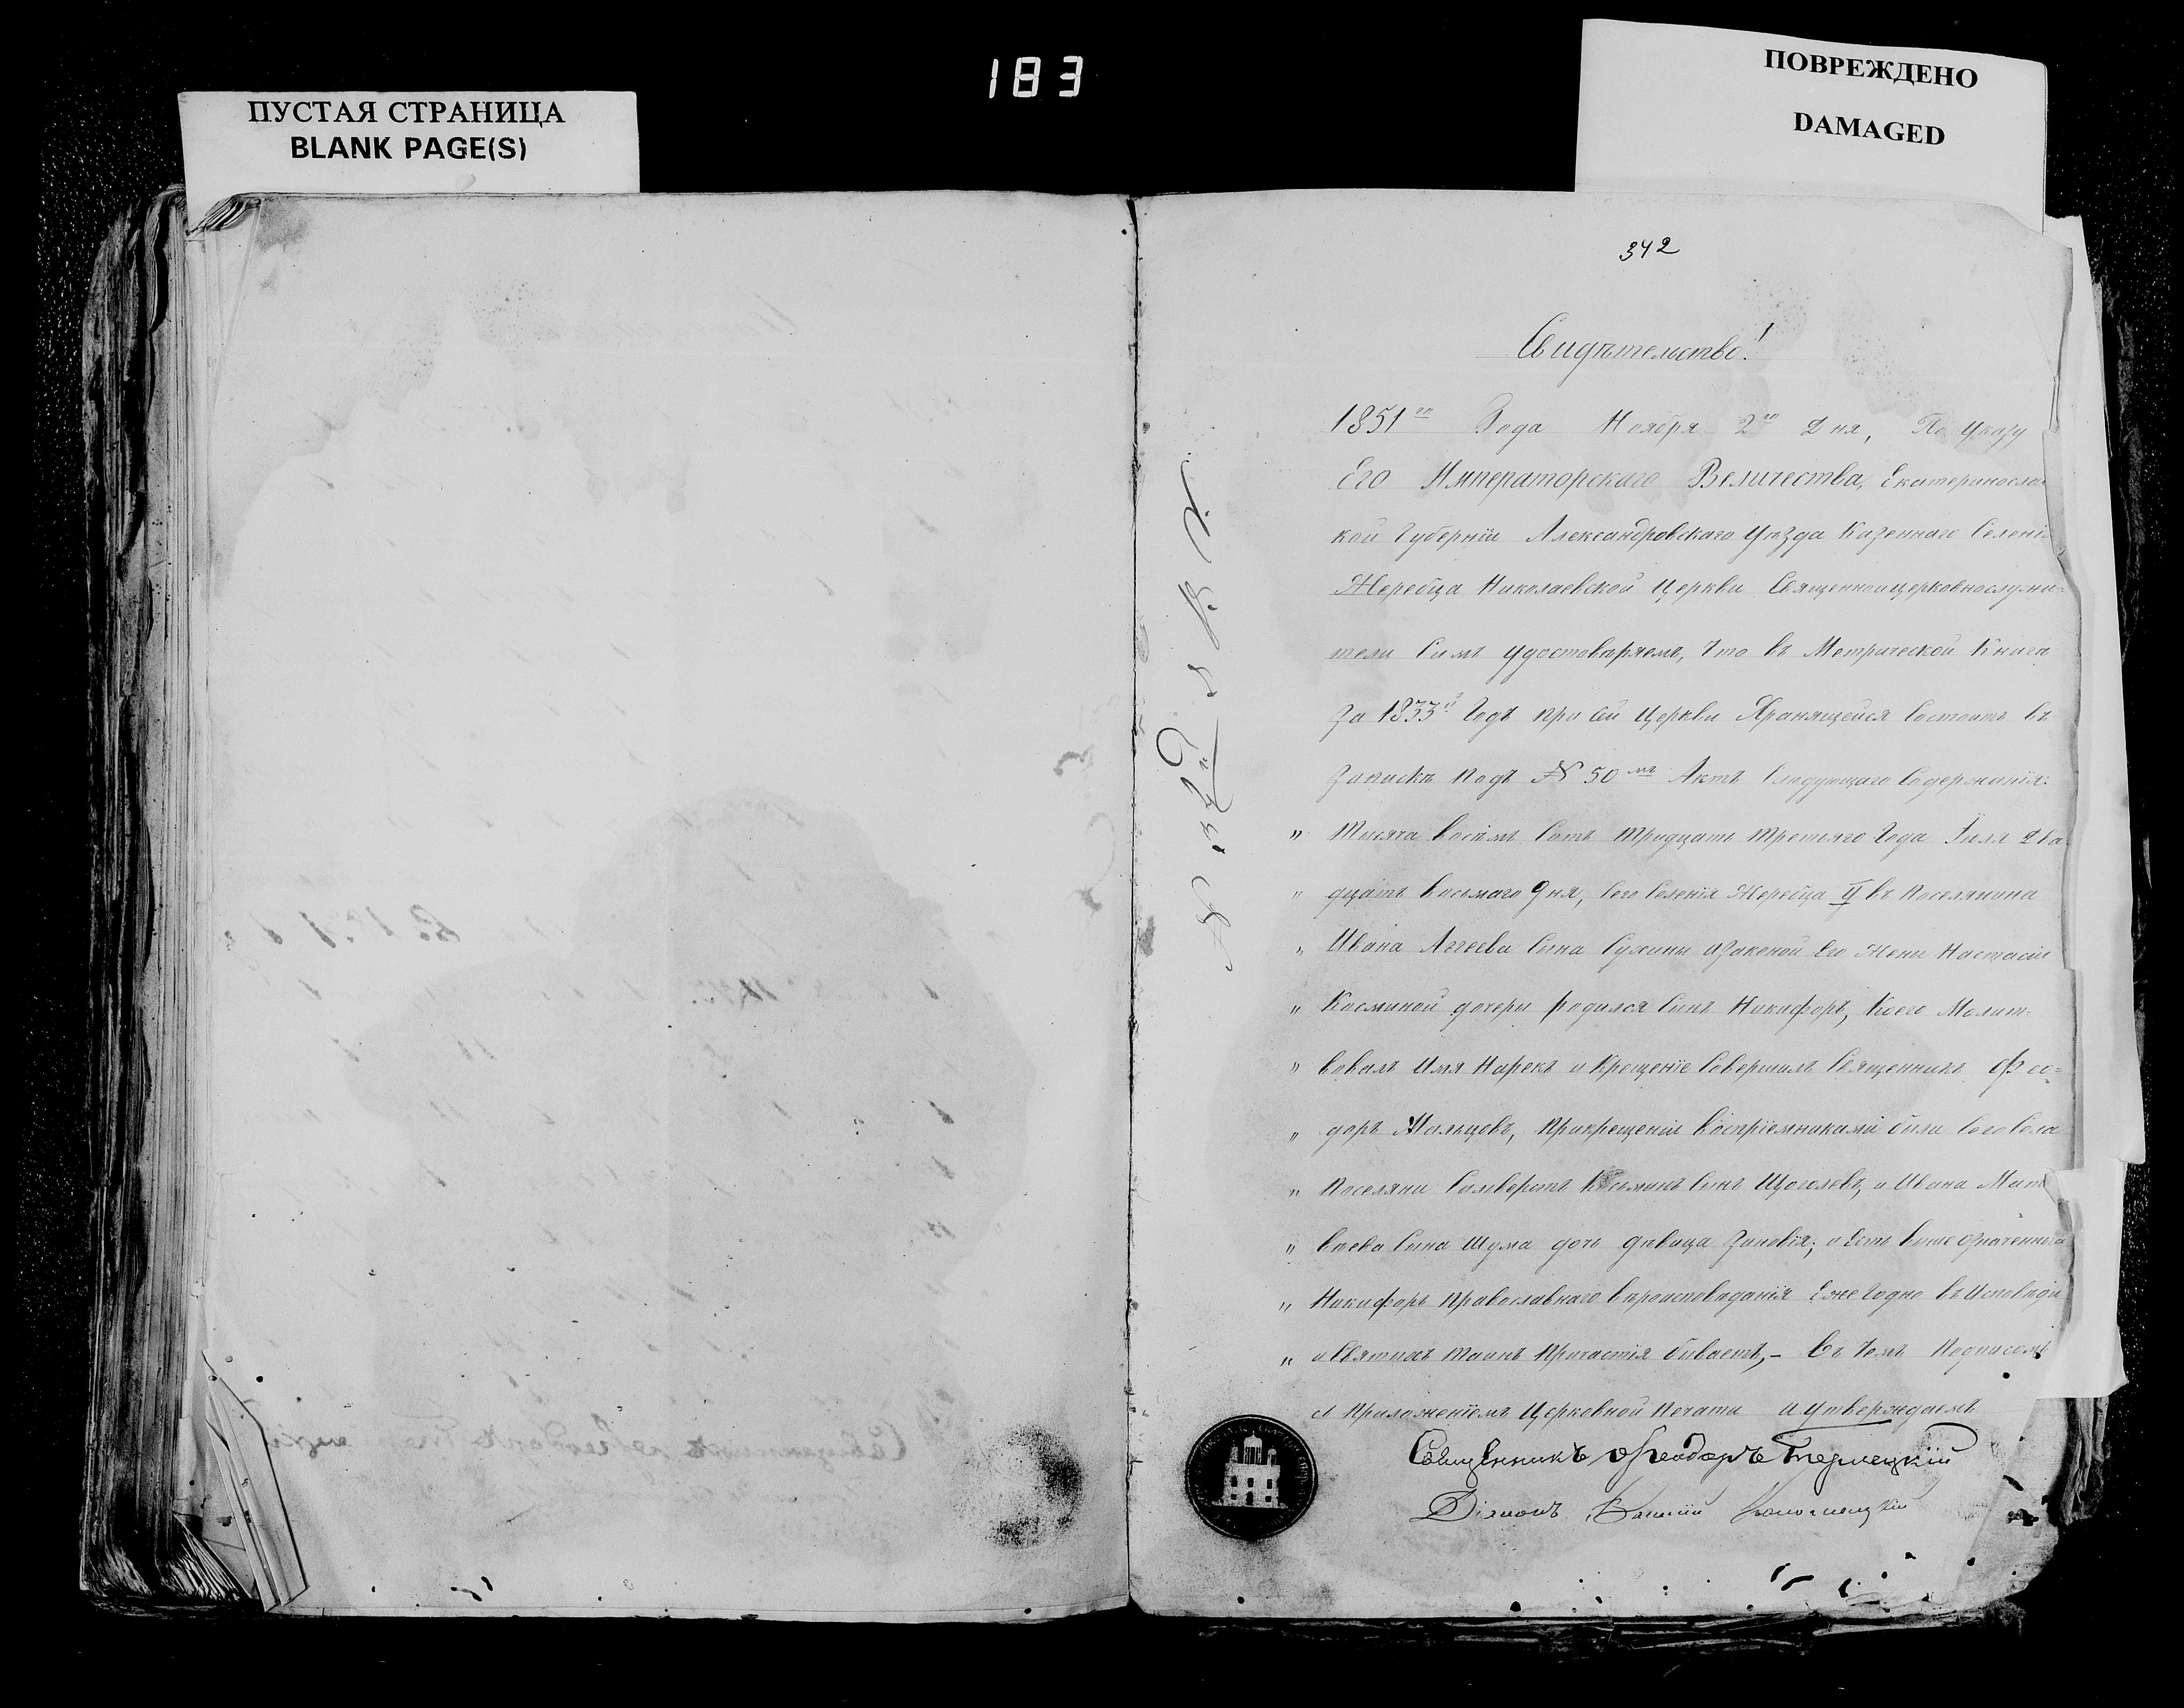 183
ПУСТАЯ СТРАНИЦА
BLANK PAGE(S)
ПОВРЕЖДЕНО
DAMAGED
342
Свидѣтельство!
1851го Года Ноября 2го Дня, По Указу
Его Императорскаго Величества, Екатеринослав
кой Губерніи Александровскаго Уѣзда Казеннаго Селенія
Жеребца Николаевской Церкви Священноицерковнослужи=
тели Симъ удостовѣряемъ, Что въ Метрической Книгѣ
За 1833й Годъ при сей Церкви Хранящейся Состоитъ въ
Запискѣ подъ № 50мъ Актъ Слѣдующаго Содержанія:
" Тысяча восемъ Сотъ тридцать третьяго Года Два
" дцать восьмаго дня, Сего Селенія Жеребца въ Поселянина
" Ивана Аггеева Сына Сухины изаконой Его Жены Настасіи
" Косминой дочери родился Сынъ Никифоръ, Коего Молит=
" вовалъ Имя Нарекъ и Крещеніе Совершилъ Священникъ Фео=
" доръ Мальцовъ, прикрещеніи воспріемниками были Сего Села
" Поселяни Силверстъ Косминъ Сынъ Щоголевъ, и Ивана Мат
" вѣева Сына Шума дочь дѣвица Зиновія; и Есть выше означенный
" Никифоръ православнаго вѣроисповѣданія Ежегодно въ Исповѣди
" и Святыхъ Таинъ Причастія бываетъ,- Въ Чемъ Подписомъ
съ Приложеніемъ Церковной Печати и Утверждаемъ
Священникъ Феодоръ Терлецкій
Діяконъ